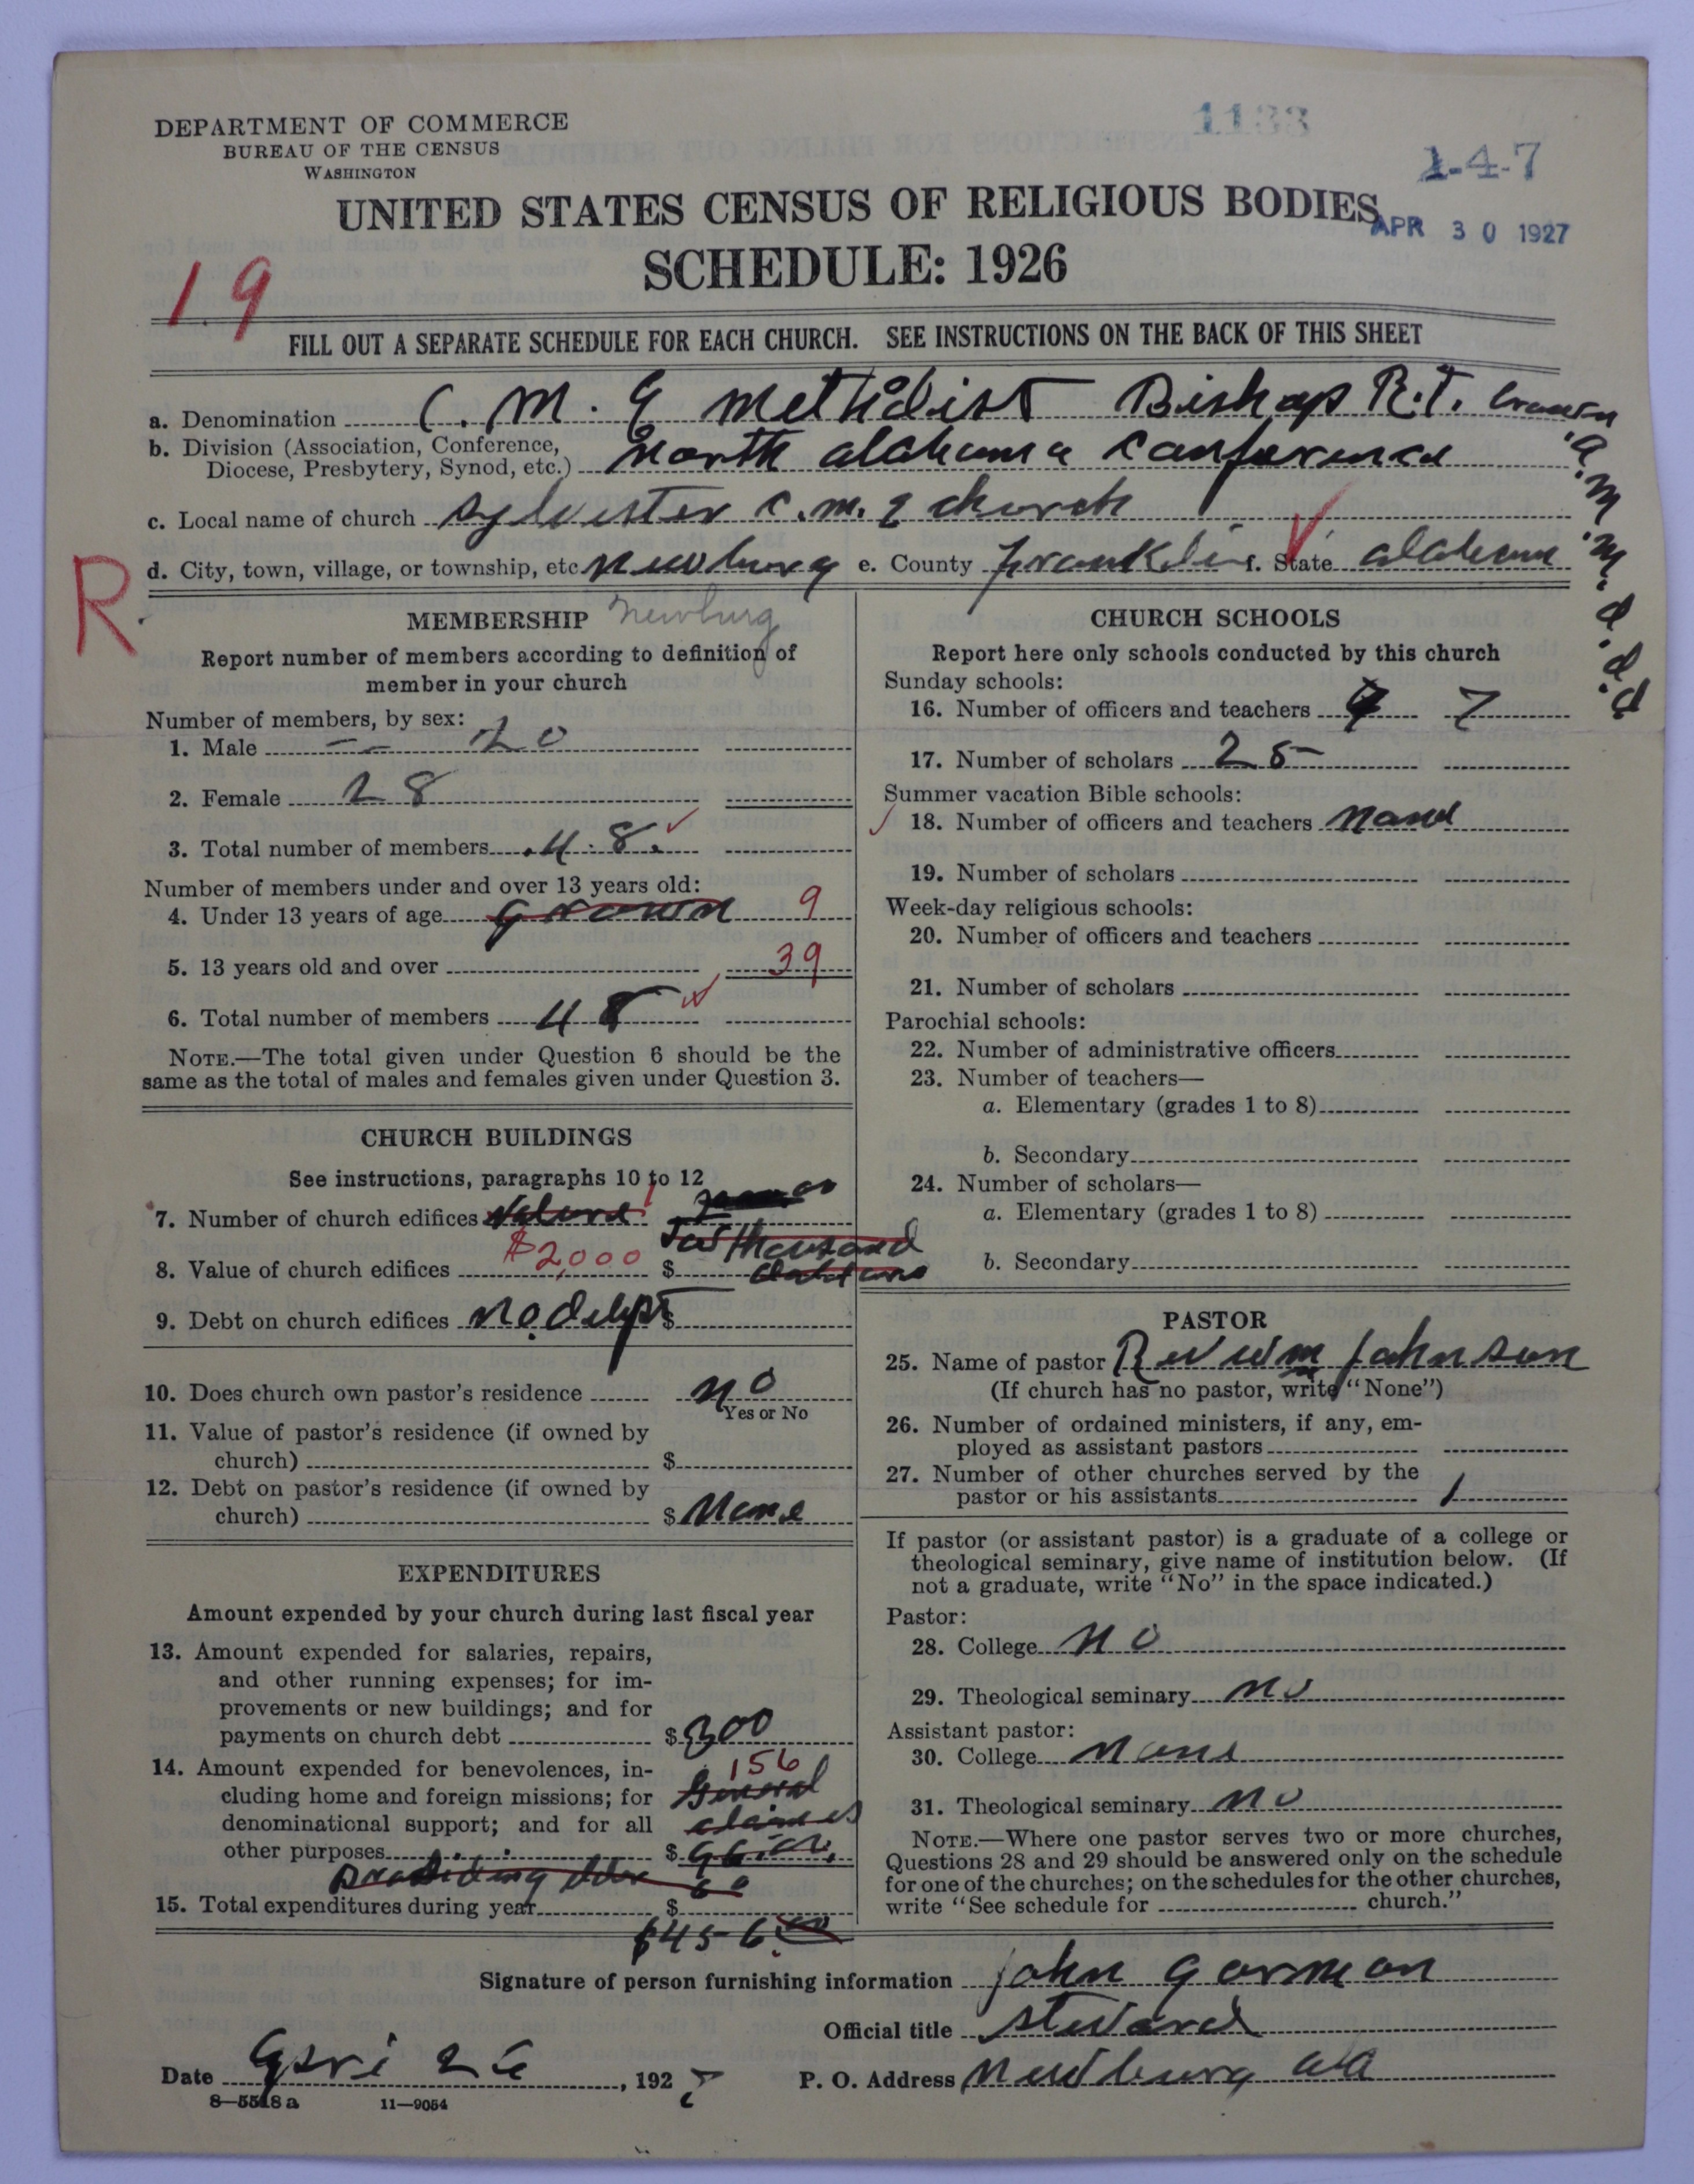 1133
DEPARTMENT OF COMMERCE
BUREAU OF THE CENSUS
WASHINGTON
1-4-7
UNITED STATES CENSUS OF RELIGIOUS BODIES
APR 30 1927
SCHEDULE: 1926
19
FILL OUT A SEPARATE SCHEDULE FOR EACH CHURCH. SEE INSTRUCTIONS ON THE BACK OF THIS SHEET
a. Denomination C. M. E Methidist Bishop R.T. Brown
a.m.m.d.d.d
b. Division (Association, Conference,
Diocese, Presbytery, Synod, etc.) North alabama Conference
c. Local name of church Sylvester C.M.E church
d. City, town, village, or township, etc. Newburg e. County Franklin f. State alabama
R
Newburg
MEMBERSHIP
Report number of members according to definition of
member in your church
Number of members, by sex:
1. Male -- 20
2. Female 28
3. Total number of members .48.
Number of members under and over 13 years old:
4. Under 13 years of age grown 9
5. 13 years old and over 39
6. Total number of members 48
NOTE.—The total given under Question 6 should be the
same as the total of males and females given under Question 3.
CHURCH BUILDINGS
See instructions, paragraphs 10 to 12
7. Number of church edifices 1
8. Value of church edifices $2,000 $ thousand
9. Debt on church edifices no debpt $
10. Does church own pastor's residence no
Yes or No
11. Value of pastor's residence (if owned by
church) $
12. Debt on pastor's residence (if owned by
church) $ None
EXPENDITURES
Amount expended by your church during last fiscal year
13. Amount expended for salaries, repairs,
and other running expenses; for im-
provements or new buildings; and for
payments on church debt $300
14. Amount expended for benevolences, in- 156
cluding home and foreign missions; for General
denominational support; and for all claimes
other purposes $96.00
Presiding elder 60
15. Total expenditures during year $
$456.00
CHURCH SCHOOLS
Report here only schools conducted by this church
Sunday schools:
16. Number of officers and teachers 7
17. Number of scholars 25
Summer vacation Bible schools:
18. Number of officers and teachers None
19. Number of scholars
Week-day religious schools:
20. Number of officers and teachers
21. Number of scholars
Parochial schools:
22. Number of administrative officers
23. Number of teachers—
a. Elementary (grades 1 to 8)
b. Secondary
24. Number of scholars—
a. Elementary (grades 1 to 8)
b. Secondary
PASTOR
25. Name of pastor Rev Wm Johnson
(If church has no pastor, write "None")
26. Number of ordained ministers, if any, em-
ployed as assistant pastors
27. Number of other churches served by the
pastor or his assistants 1
If pastor (or assistant pastor) is a graduate of a college or
theological seminary, give name of institution below. (If
not a graduate, write "No" in the space indicated.)
Pastor:
28. College no
29. Theological seminary no
Assistant pastor:
30. College None
31. Theological seminary no
NOTE.—Where one pastor serves two or more churches,
Questions 28 and 29 should be answered only on the schedule
for one of the churches; on the schedules for the other churches,
write "See schedule for church."
Signature of person furnishing information John Gorman
Official title Steward
Date Apri 26, 1927 P. O. Address Newburg ala
8—5518a 11—9054